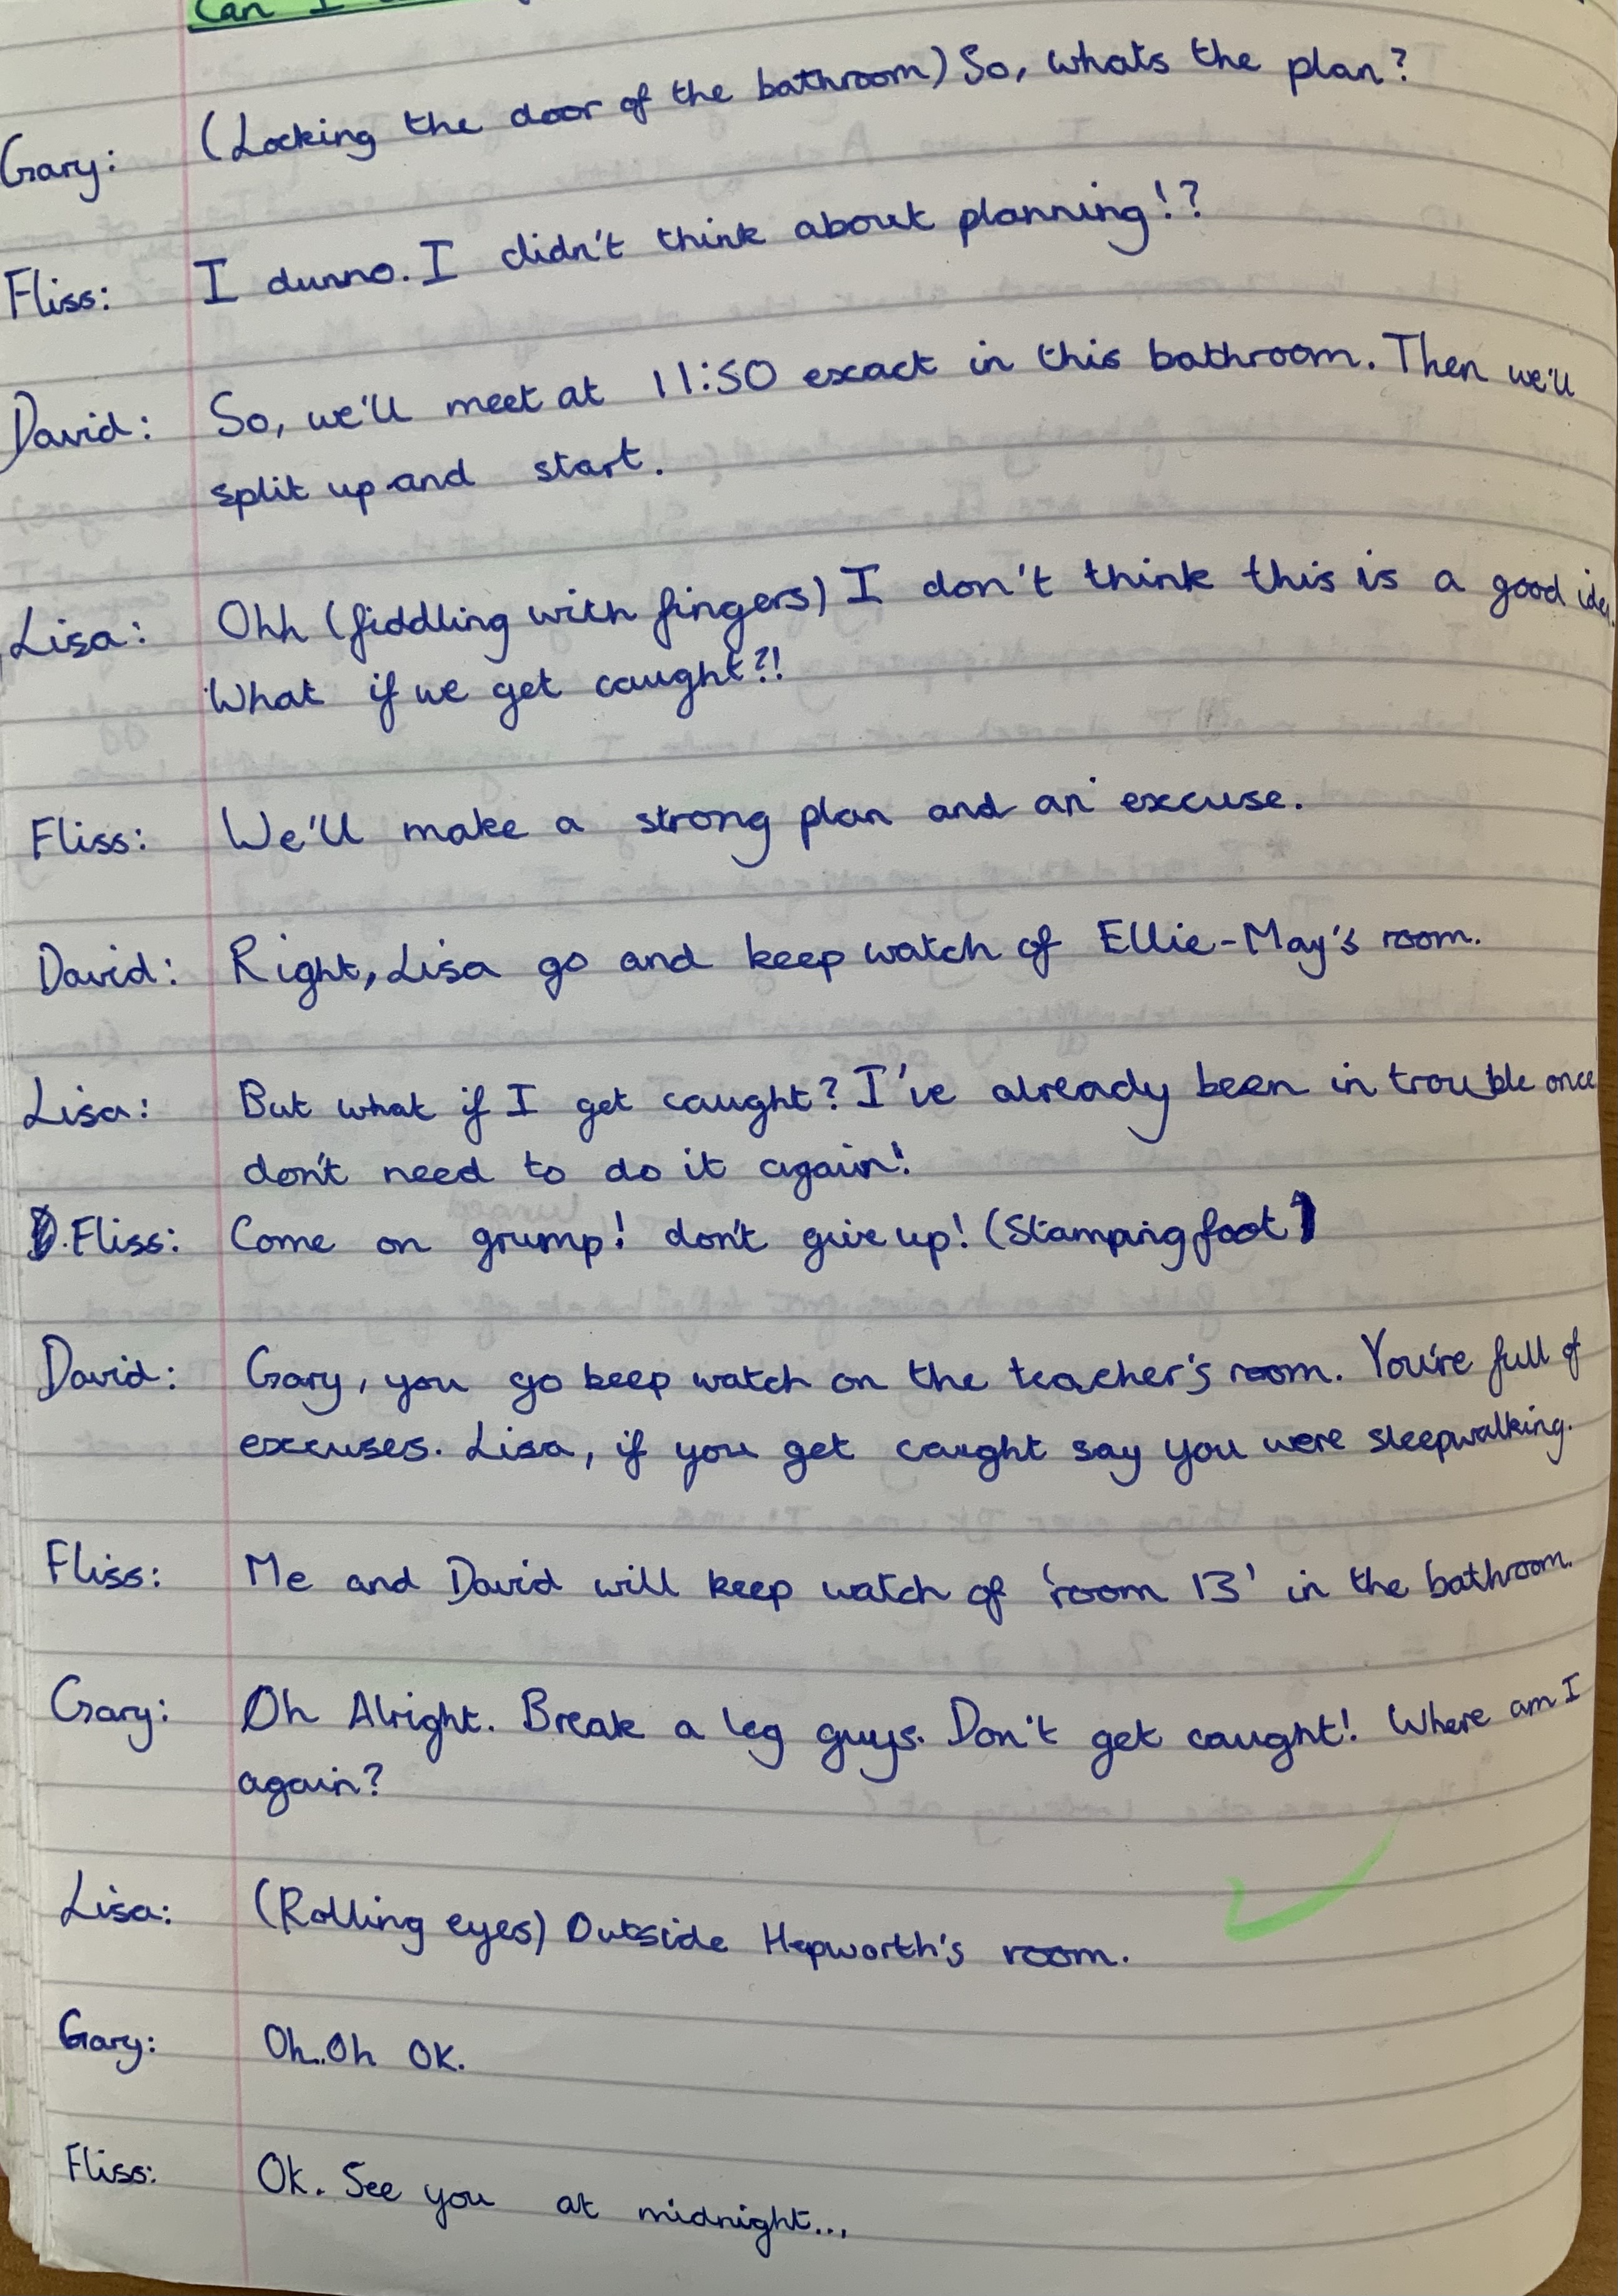 Can I
Gary: (Locking the door of the bathroom) So, whats the plan?
Fliss: I dunno. I didn't think about planning!?
David: So, we'll meet at 11:50 exact in this bathroom. Then we'll
split up and start.
Lisa: Ohh (fiddling with fingers) I don't think this is a good idea.
What if we get caught?!
Fliss: We'll make a strong plan and an excuse.
David: Right, Lisa go and keep watch of Ellie-May's room.
Lisa: But what if I get caught? I've already been in trouble once
don't need to do it again!
Fliss: Come on grump! don't give up! (Stamping foot)
David: Gary, you go keep watch on the teacher's room. You're full of
excuses. Lisa, if you get caught say you were sleepwalking.
Fliss: Me and David will keep watch of 'room 13' in the bathroom.
Gary: Oh Alright. Break a leg guys. Don't get caught! Where am I
again?
Lisa: (Rolling eyes) Outside Hepworth's room.
Gary: Oh..Oh OK.
Fliss: Ok. See you at midnight...